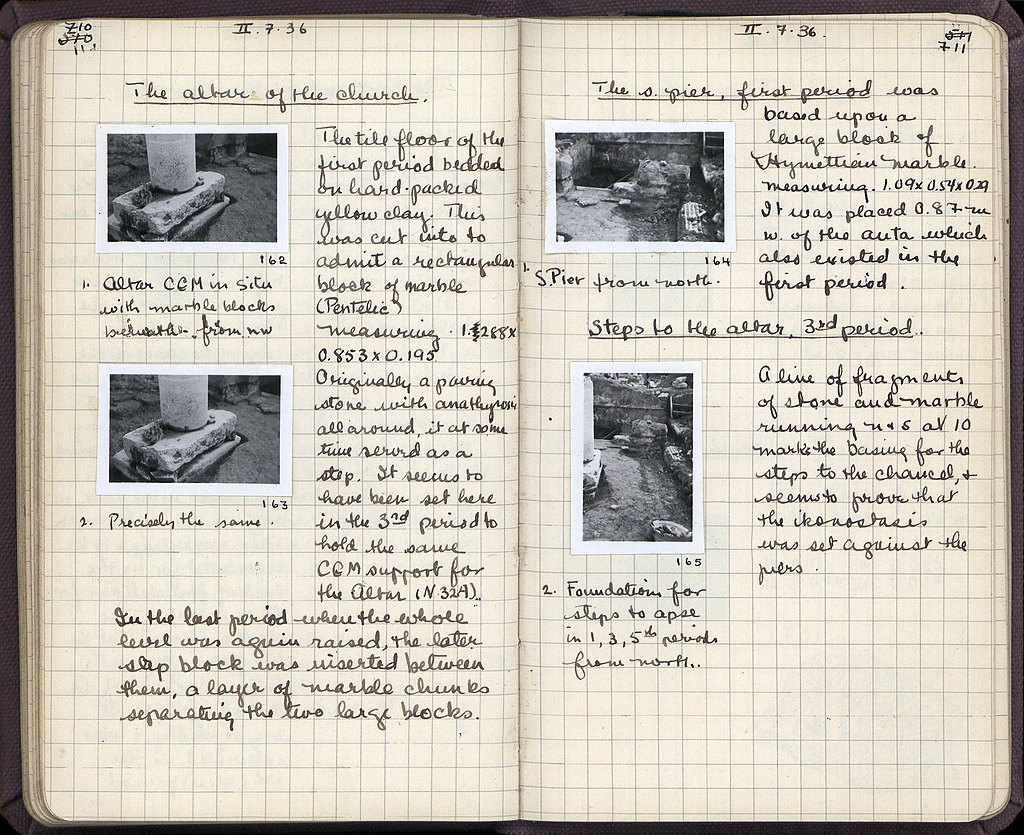 710
II.7.36
The altar of the church.
The tile floor of the
first period bedded
on hard packed
yellow clay. This
was cut into to
admit a rectangular
block of marble
(Pentelic)
measuring
0.853 x 0.195
Originally a paving
stone with anathyrosis
all around, it at some
time served as a
step. It seems to
have been set here
in the 3rd period to
hold the same
CGM support for
the Altar (N.32A).
162
1. Altar CGM in situ
with marble blocks
beneath. from nw
163
2. Precisely the same.
In the last period when the whole
level was again raised, the later
step block was inserted between
them, a layer of marble chunks
separating the two large blocks.
II.7.36.
711
The s. pier, first period was
based upon a
large block of
Hymettian marble.
measuring. 1.09 x 0.54 x 0.29
It was placed 0.87 m
w. of the anta which
also existed in the
first period.
164
1. S. Pier from north.
Steps to the altar, 3rd period.
A line of fragments
of stone and marble
running n & s at 10
marks the basing for the
steps to the chancel, &
seems to prove that
the ikonostasis
was set against the
piers.
165
2. Foundation for
steps to apse
in 1, 3, 5th periods
from north.